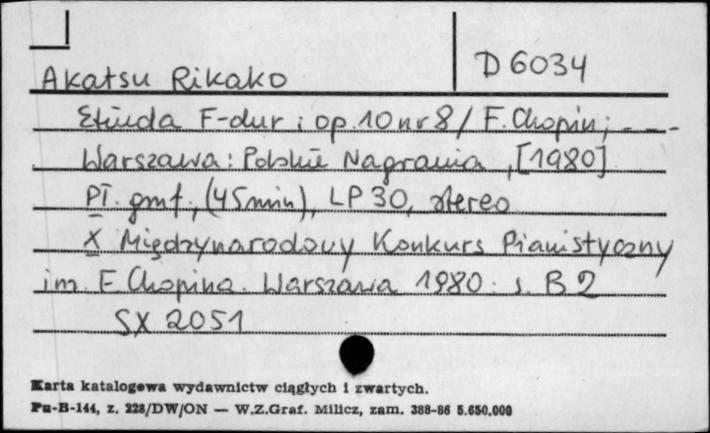 Akatsu Rikako
D 6034
Etiuda F-dur ; op. 10 nr 8 / F. Chopin ; - - -
Warszawa : Polskie Nagrania , [1980]
Pł. gmf., (45 min), LP 30, stereo
X Międzynarodowy Konkurs Pianistyczny
im. F. Chopina. Warszawa 1980. s. B 2
SX 2051
Karta katalogowa wydawnictw ciągłych i zwartych.
Pu-B-144, z. 228/DW/ON — W.Z.Graf. Milicz, zam. 388-86 5.650.000